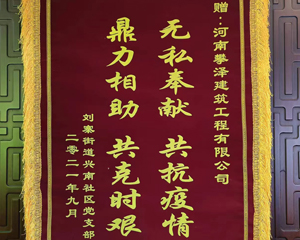 赠：河南攀泽建筑工程有限公司
无私奉献 共抗疫情
鼎力相助 共克时艰
刘寨街道兴南社区党支部
二零二一年九月